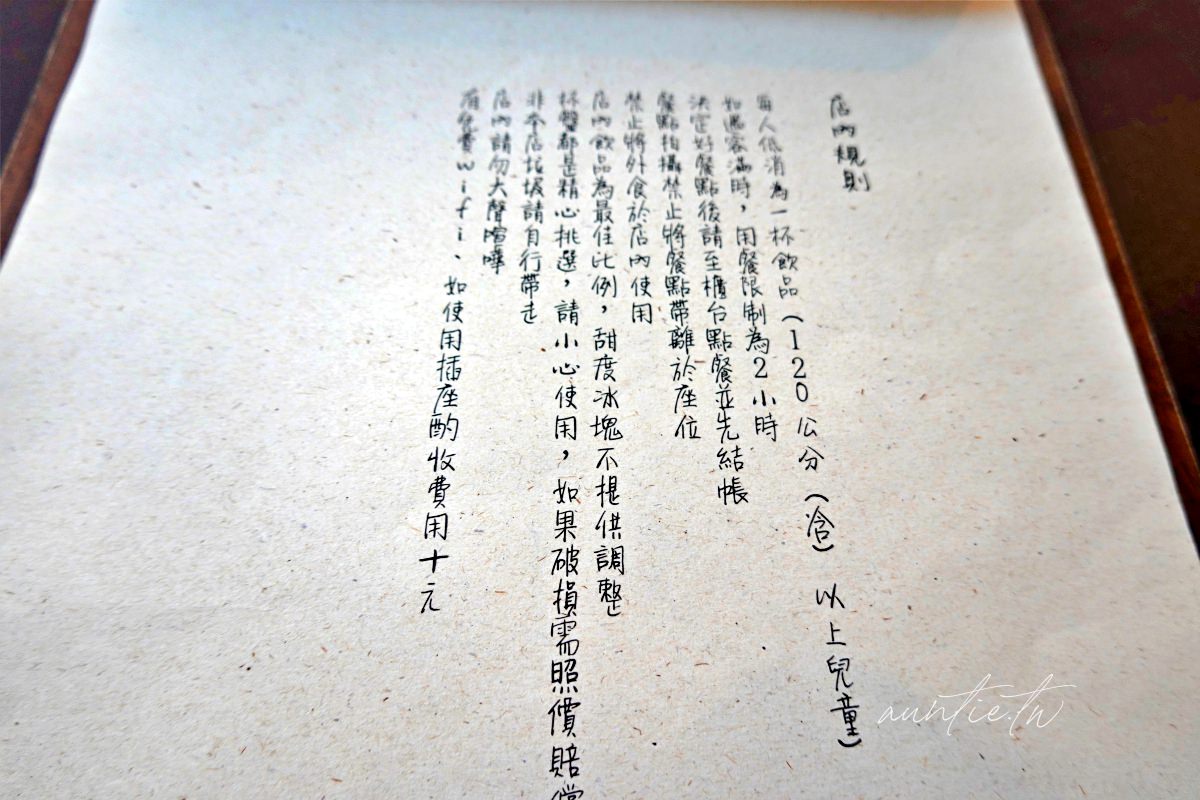 店內規則
每人低消為一杯飲品(120公分(含) 以上兒童)
如遇客滿時，用餐限制為2小時
決定好餐點後請至櫃台點餐並先結帳
餐點拍攝禁止將餐點帶離於座位
禁止將外食於店內使用
店內飲品為最佳比例，甜度冰塊不提供調整
杯盤都是精心挑選，請小心使用，如果破損需照價賠償
非本店垃圾請自行帶走
店內請勿大聲喧嘩
有免費wifi、如使用插座酌收費用十元
auntie.tw